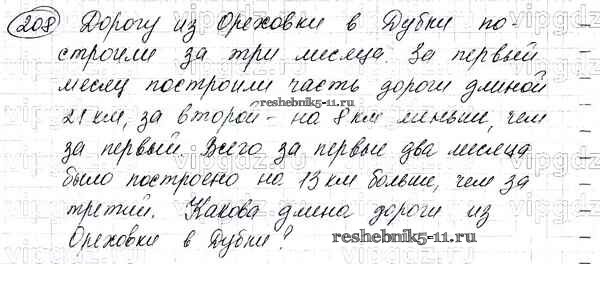 208 Дорогу из Ореховки в Дубки по-
строили за три месяца. За первый
месяц построили часть дороги длиной
reshebnik5-11.ru
21 км, за второй - на 8 км меньше, чем
за первый. Всего за первые два месяца
было построено на 13 км больше, чем за
третий. Какова длина дороги из
Ореховки в Дубки?
reshebnik5-11.ru